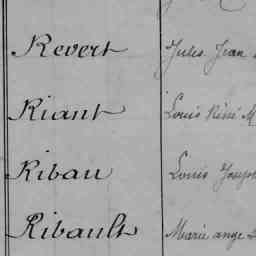 Revert Jules Jean
Riant Louis Réné M
Ribau Louis Joseph
Ribault Marie ange